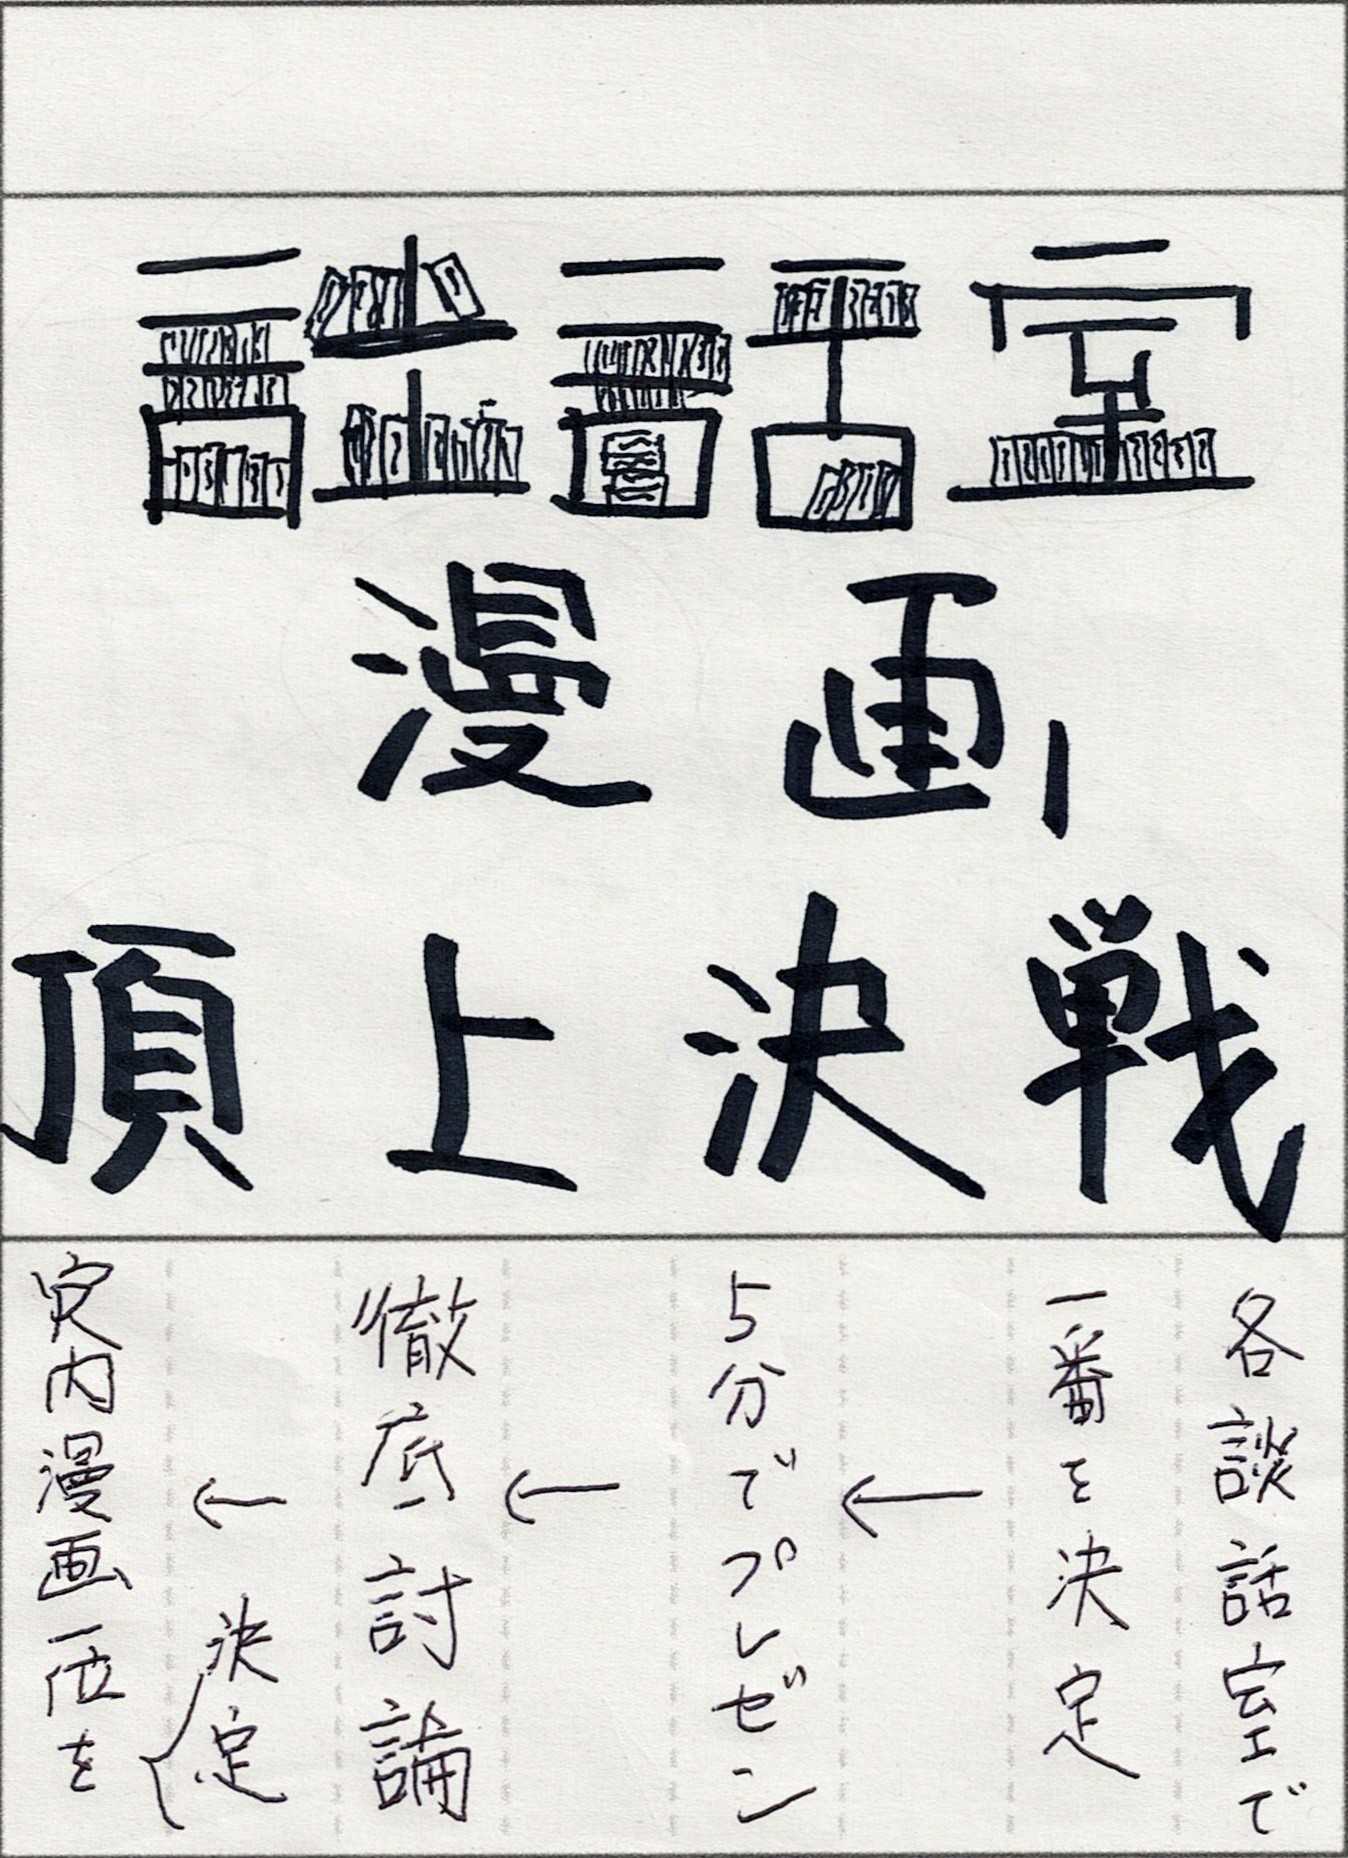 談話室
漫画
頂上決戦
各談話室で
一番を決定
←
5分でプレゼン
←
徹底討論
←
内漫画一位を
決定